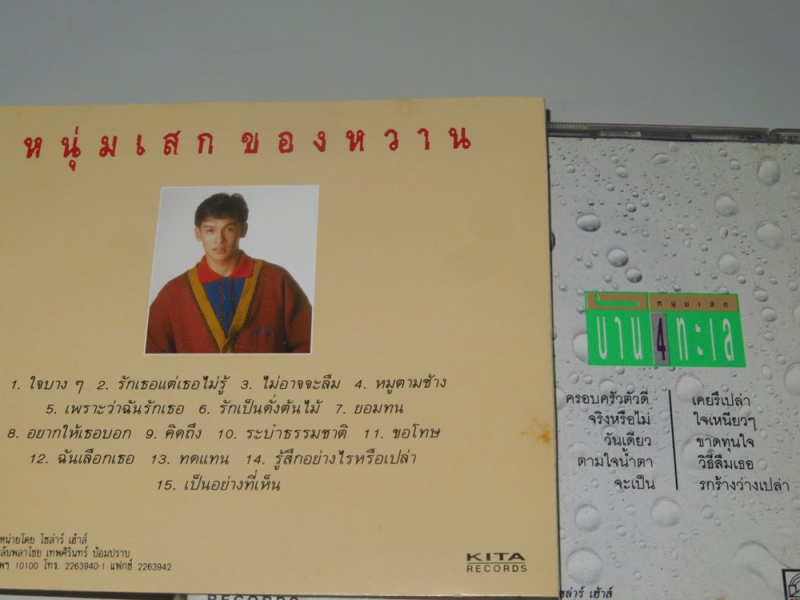 หนุ่มเสก ของหวาน
1. ใจบาง ๆ 2. รักเธอแต่เธอไม่รู้ 3. ไม่อาจจะลืม 4. หมูตามช้าง
5. เพราะว่าฉันรักเธอ 6. รักเป็นดั่งต้นไม้ 7. ยอมทน
8. อยากให้เธอบอก 9. คิดถึง 10. ระบำธรรมชาติ 11. ขอโทษ
12. ฉันเลือกเธอ 13. ทดแทน 14. รู้สึกอย่างไรหรือเปล่า
15. เป็นอย่างที่เห็น
หน่ายโดย โซล่าร์ เฮ้าส์
ลับพลาไชย เทพศิรินทร์ ป้อมปราบ
10100 โทร. 2263940-1 แฟกซ์ 2263942
KITA
RECORDS
หนุ่มเสก
บาน 4 ทะเล
ครอบครัวตัวดี
จริงหรือไม่
วันเดียว
ตามใจน้ำตา
จะเป็น
เคยรึเปล่า
ใจเหนียวๆ
ขาดทุนใจ
วิธีลืมเธอ
รกร้างว่างเปล่า
โซล่าร์ เฮ้าส์
RECORDS